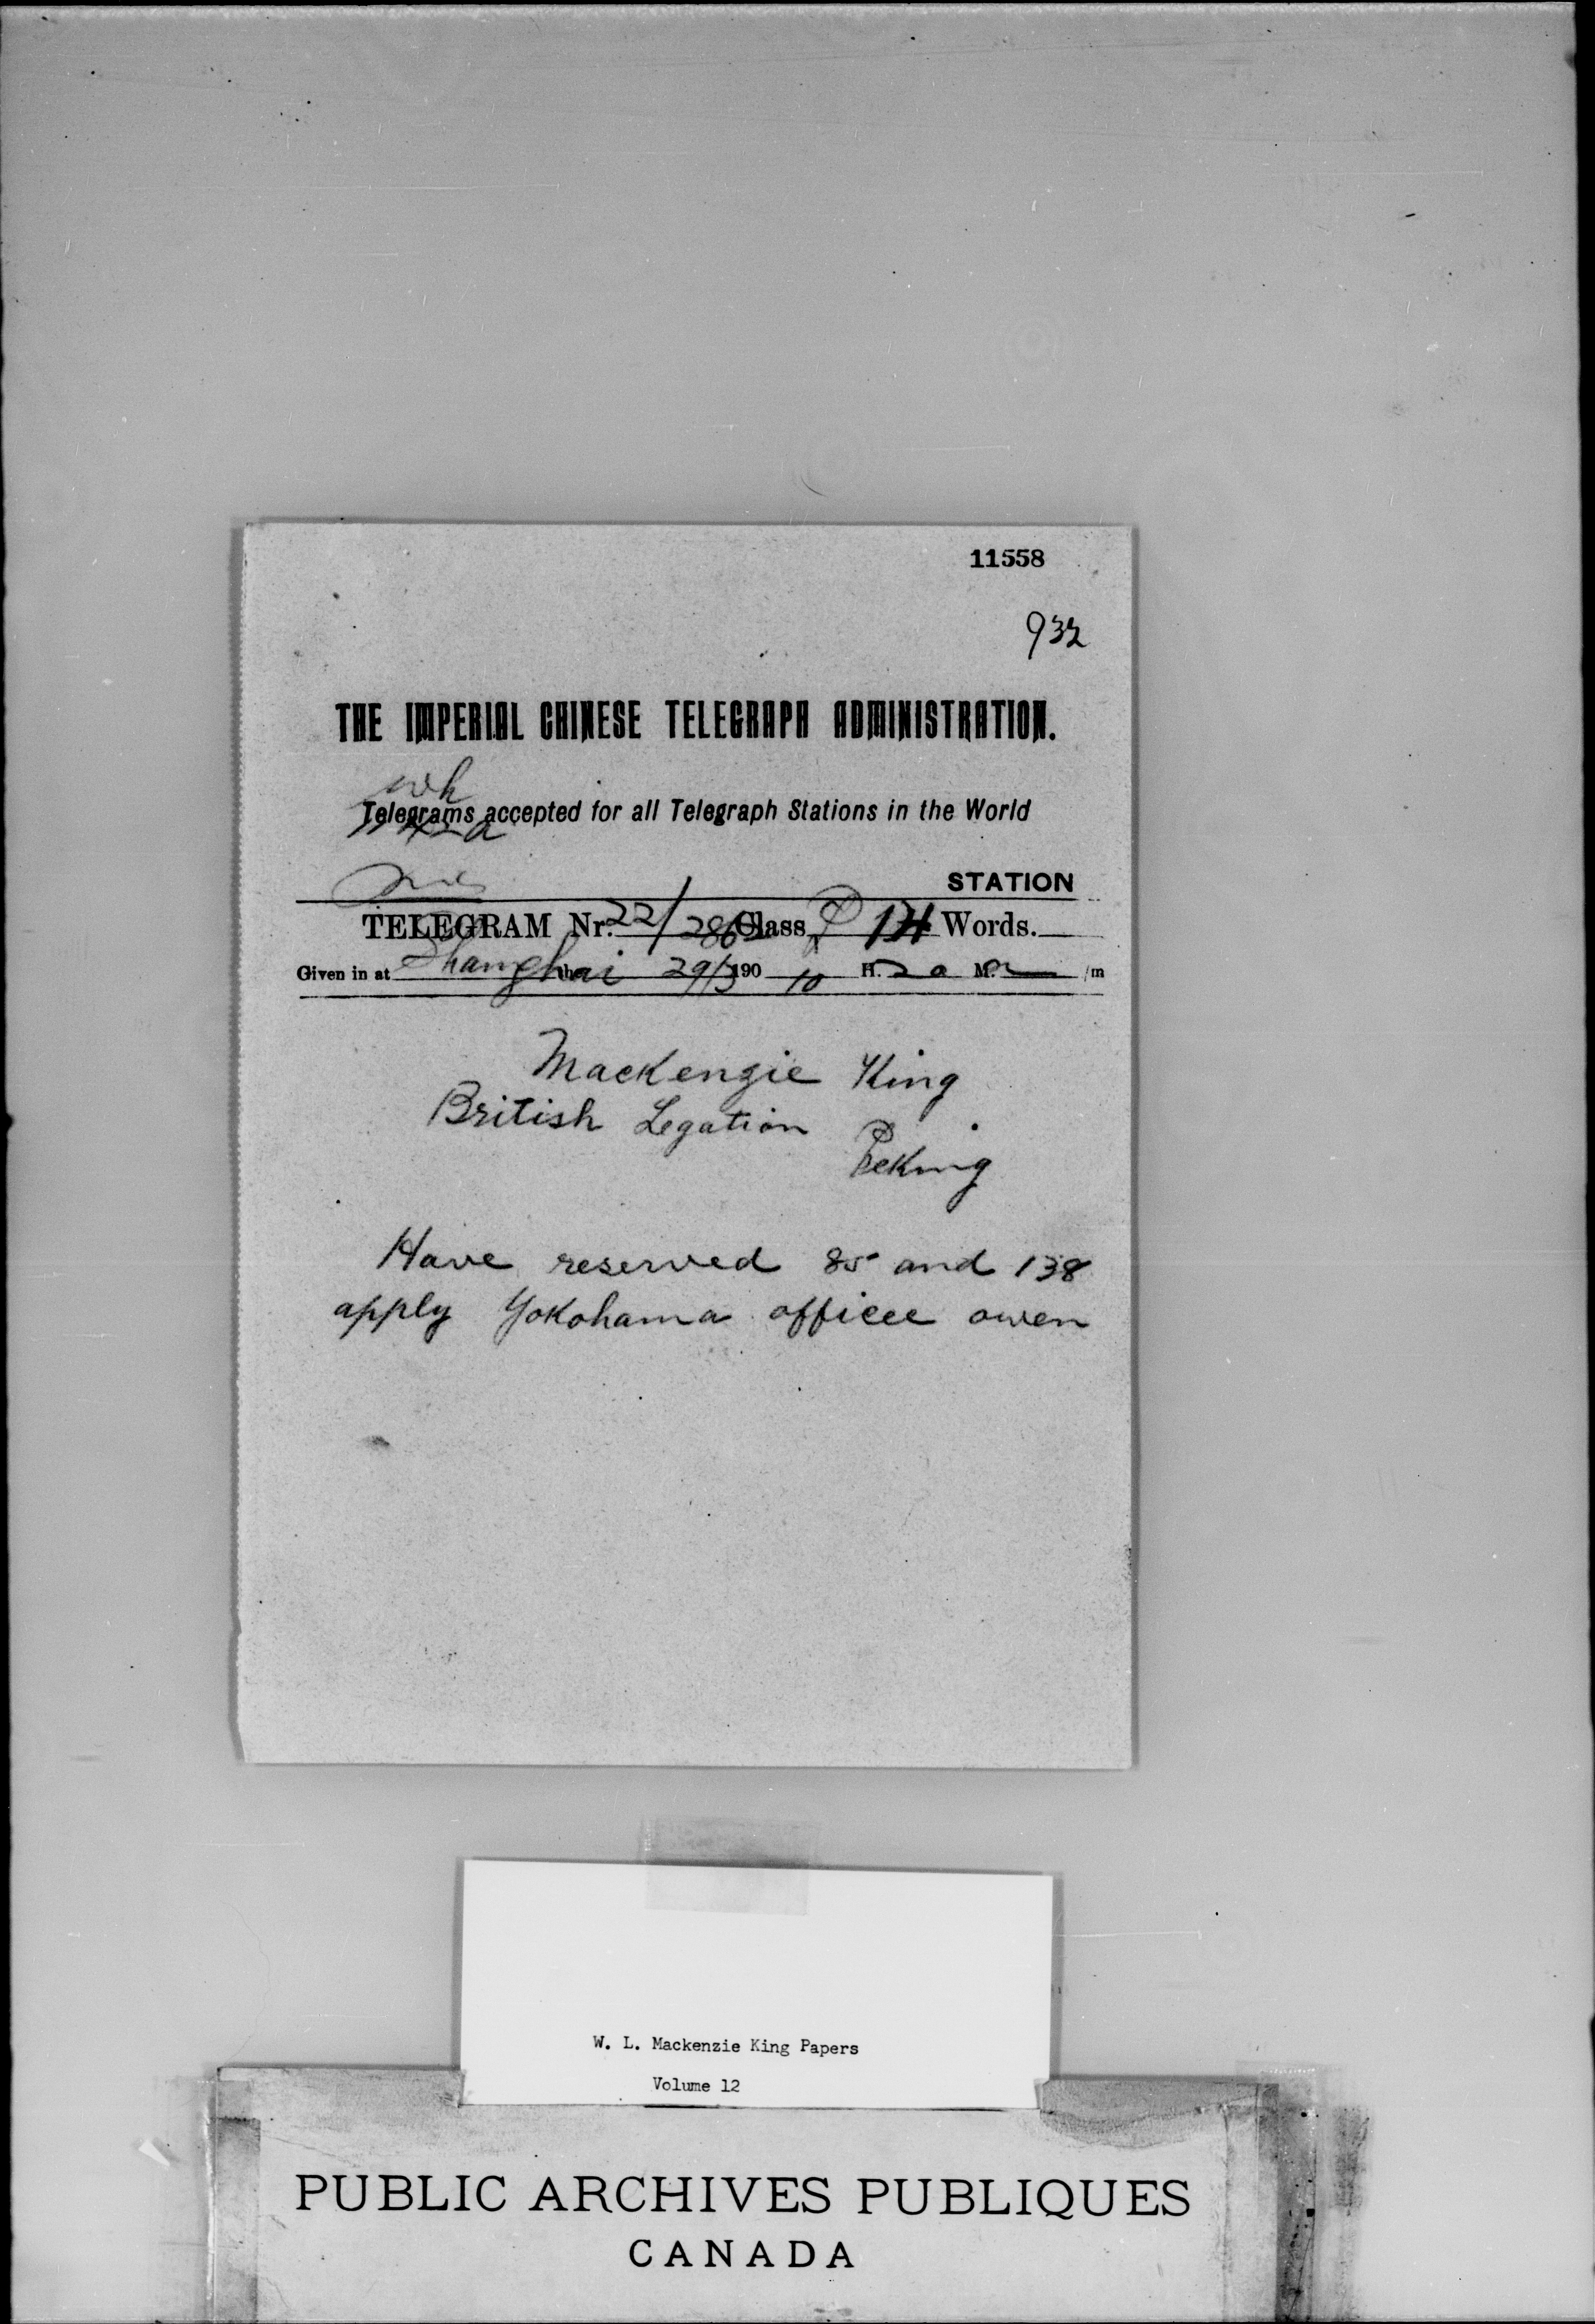 11558
932
THE IMPERIAL CHINESE TELEGRAPH ADMINISTRATION.
wh
Telegrams accepted for all Telegraph Stations in the World
STATION
TELEGRAM Nr. 22/ Class P 14 Words.
Given in at Shanghai the 29/3 190 10 H. 2 a M. /m
Mackenzie King
British Legation
Peking
Have reserved 85 and 138
apply Yokohama officee owen
W. L. Mackenzie King Papers
Volume 12
PUBLIC ARCHIVES PUBLIQUES
CANADA